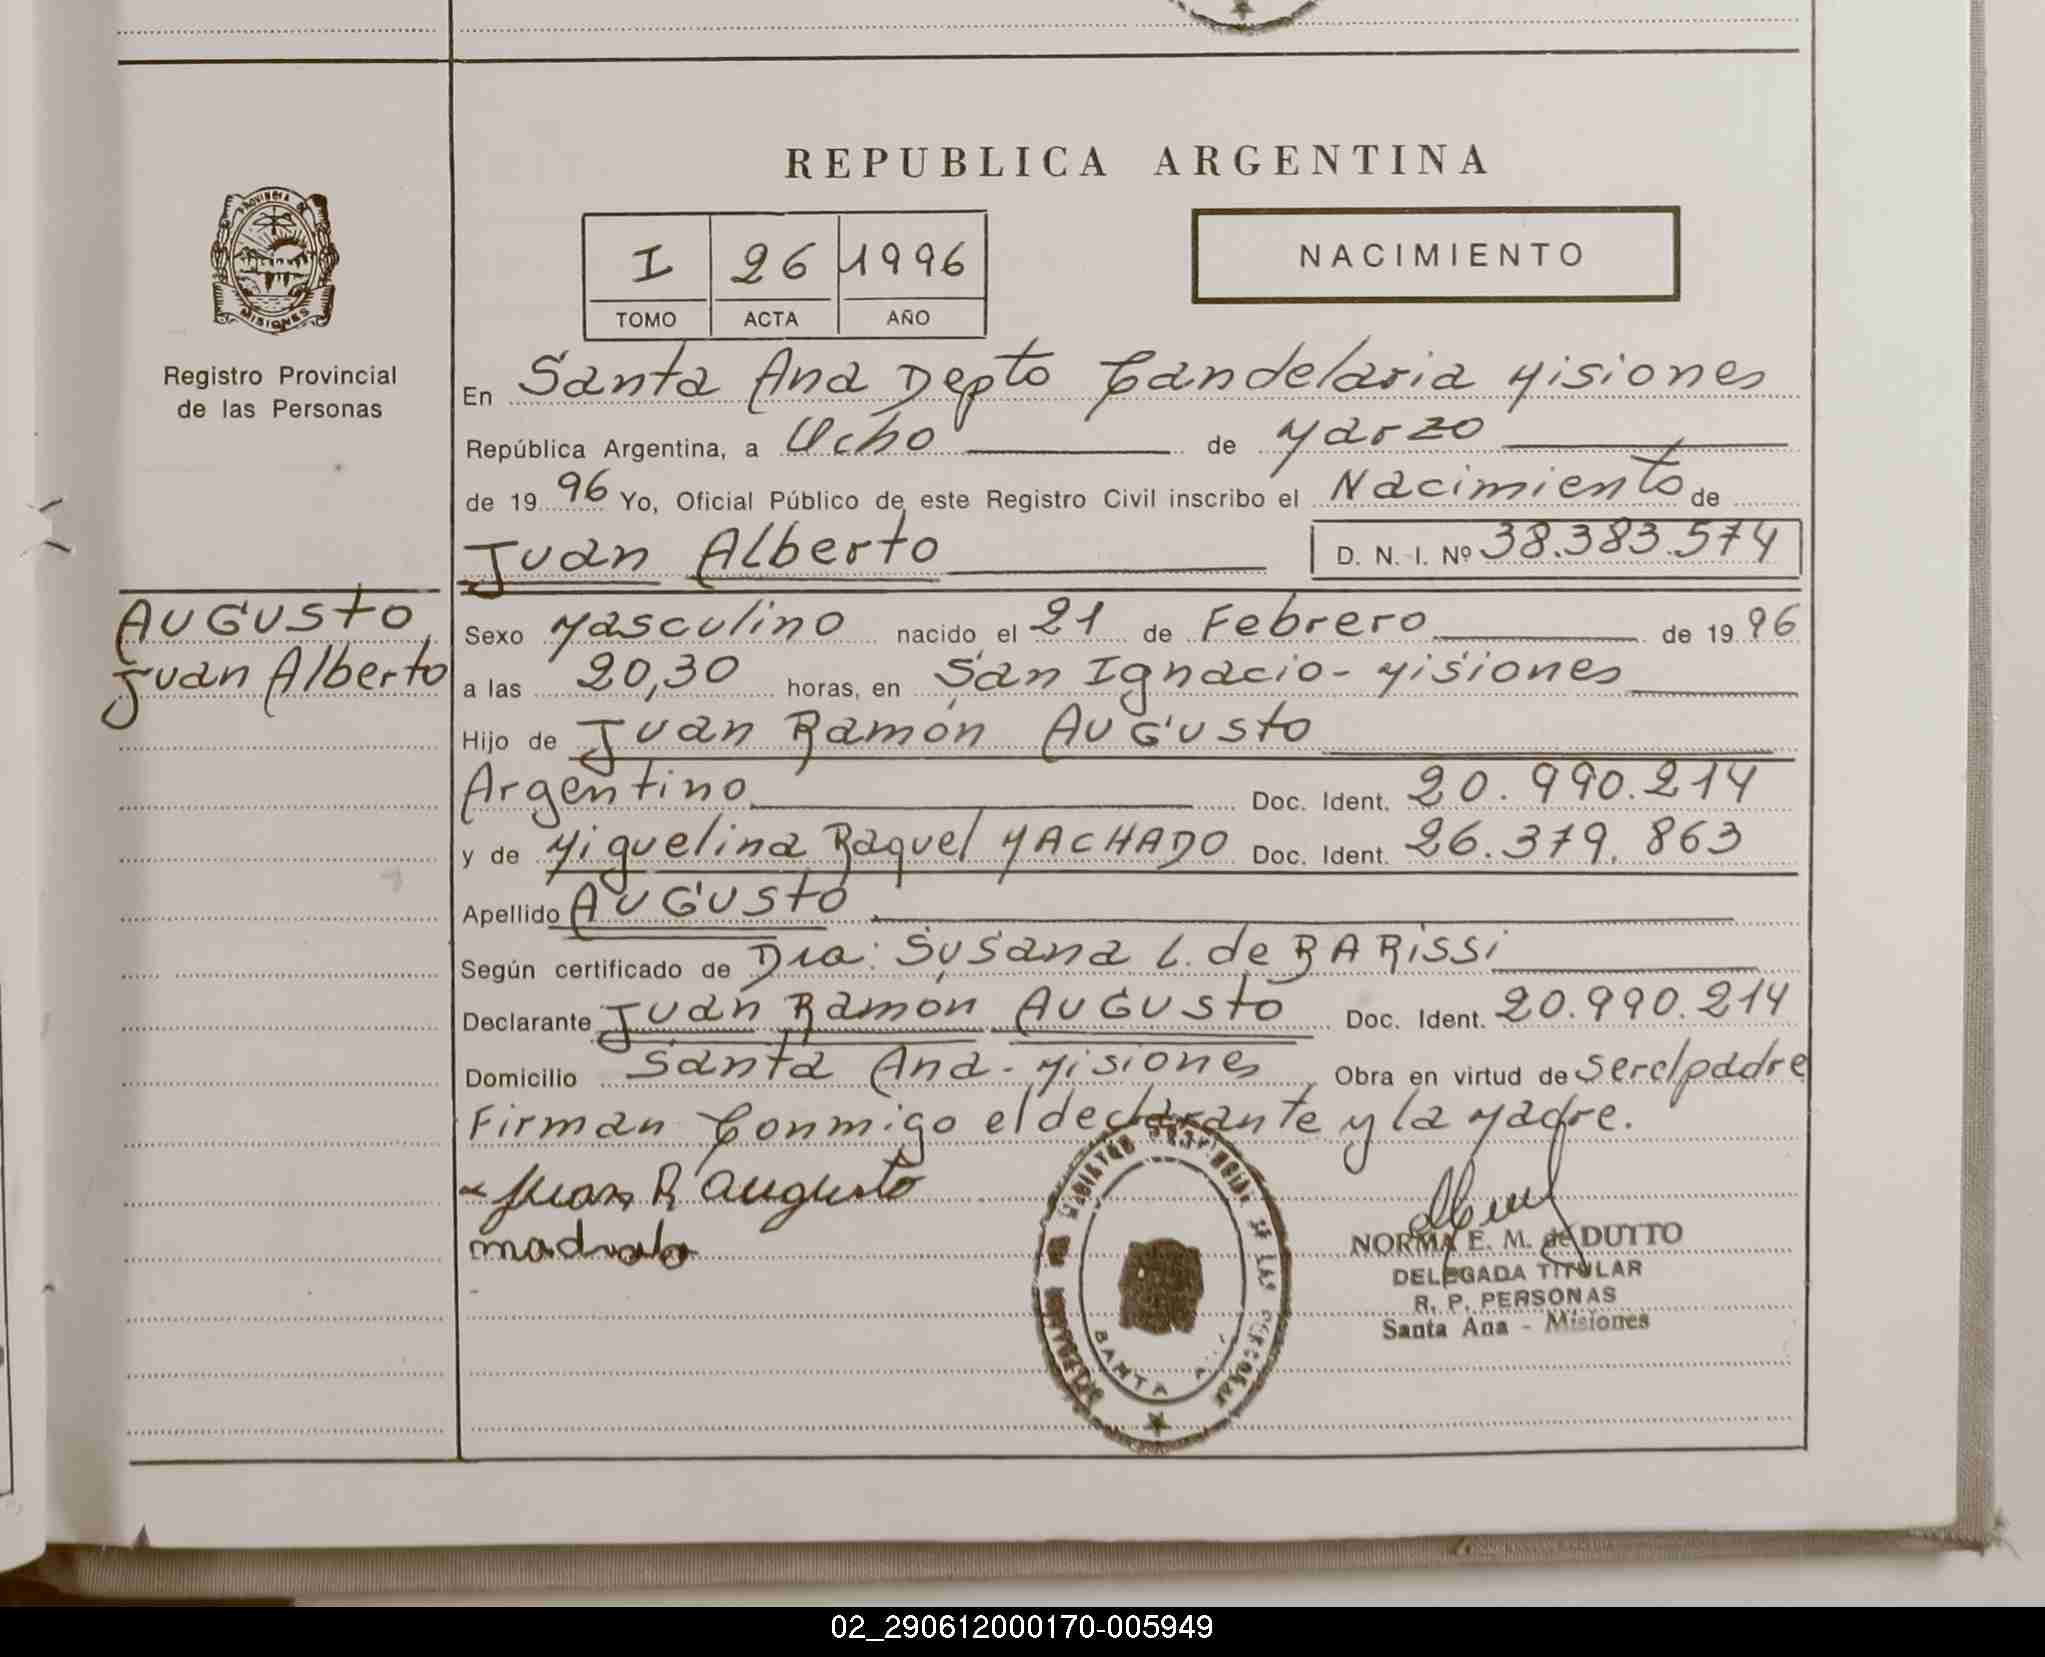 REPUBLICA ARGENTINA
PROVINCIA DE
MISIONES
Registro Provincial
de las Personas
I 26 1996
TOMO ACTA AÑO
NACIMIENTO
En Santa Ana Depto Candelaria Misiones
República Argentina, a Ocho de Marzo
de 19 96 Yo, Oficial Público de este Registro Civil inscribo el Nacimiento de
Juan Alberto D. N. I. Nº 38.383.574
AUGUSto,
Juan Alberto
Sexo Masculino nacido el 21 de Febrero de 19 96
a las 20,30 horas, en San Ignacio - Misiones
Hijo de Juan Ramón AUGUSto
Argentino Doc. Ident. 20.990.214
y de Miguelina Raquel MACHADO Doc. Ident. 26.379.863
Apellido AUGUSto
Según certificado de Dra: Susana L. de BARissi
Declarante Juan Ramón AUGUSto Doc. Ident. 20.990.214
Domicilio Santa Ana - Misiones, Obra en virtud de ser el padre
Firman Conmigo el declarante y la Madre.
Juan R Augusto
REGISTRO PROVINCIAL DE LAS PERSONAS
MISIONES
SANTA
NORMA E. M. de DUTTO
DELEGADA TITULAR
R. P. PERSONAS
Santa Ana - Misiones
02_290612000170-005949